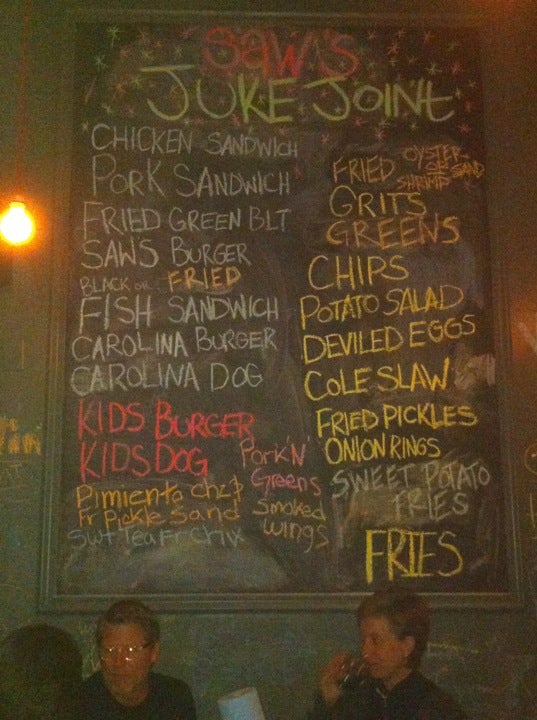 SAW'S
JUKE JOINT
CHICKEN SANDWICH
PORK SANDWICH
FRIED GREEN BLT
SAWS BURGER
BLACK OR FRIED
FISH SANDWICH
CAROLINA BURGER
CAROLINA DOG
KIDS BURGER
KIDS DOG
Pimiento chz &
Fr Pickle Sand
Swt Tea Fr Chix
Pork 'N'
Greens
Smoked
wings
FRIED OYSTER OR SHRIMP SAND
GRITS
GREENS
CHIPS
POTATO SALAD
DEVILED EGGS
COLE SLAW
FRIED PICKLES
ONION RINGS
SWEET POTATO
FRIES
FRIES